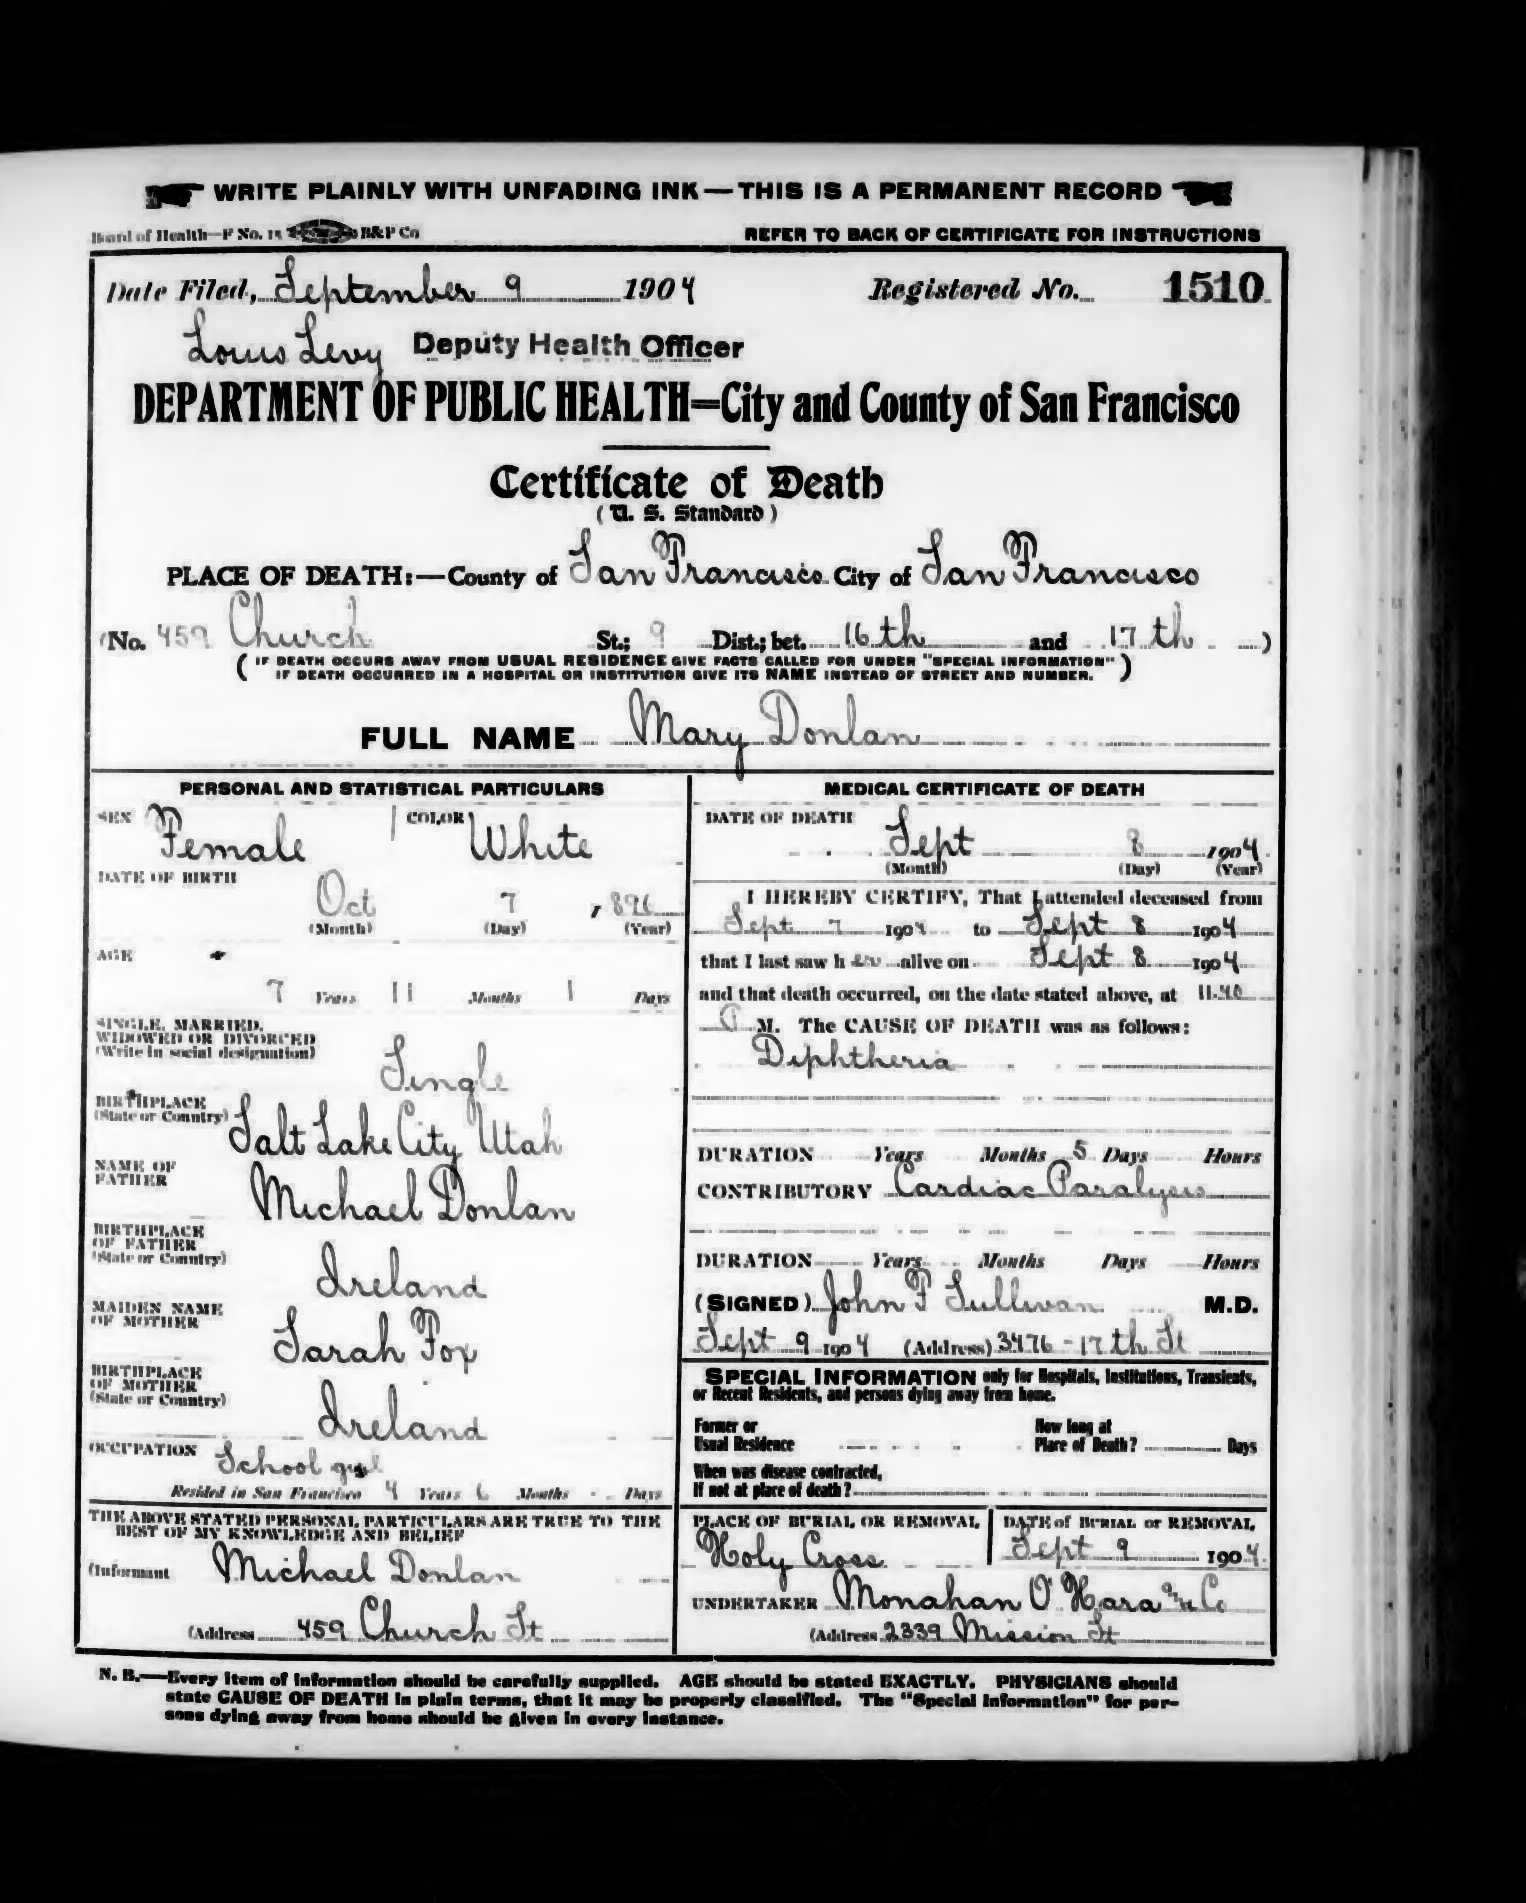 WRITE PLAINLY WITH UNFADING INK — THIS IS A PERMANENT RECORD
Board of Health—F No. 15 B&P Co
REFER TO BACK OF CERTIFICATE FOR INSTRUCTIONS
Date Filed, September 9 1904 Registered No. 1510
Louis Levy Deputy Health Officer
DEPARTMENT OF PUBLIC HEALTH=City and County of San Francisco
Certificate of Death
(U. S. Standard)
PLACE OF DEATH:—County of San Francisco City of San Francisco
(No. 459 Church St.; 9 Dist.; bet. 16th and 17th )
( IF DEATH OCCURS AWAY FROM USUAL RESIDENCE GIVE FACTS CALLED FOR UNDER "SPECIAL INFORMATION"
IF DEATH OCCURRED IN A HOSPITAL OR INSTITUTION GIVE ITS NAME INSTEAD OF STREET AND NUMBER. )
FULL NAME Mary Donlan
PERSONAL AND STATISTICAL PARTICULARS
SEX Female COLOR White
DATE OF BIRTH
Oct 7 , 1896
(Month) (Day) (Year)
AGE
7 Years 11 Months 1 Days
SINGLE, MARRIED,
WIDOWED OR DIVORCED
(Write in social designation)
Single
BIRTHPLACE
(State or Country)
Salt Lake City Utah
NAME OF
FATHER
Michael Donlan
BIRTHPLACE
OF FATHER
(State or Country)
Ireland
MAIDEN NAME
OF MOTHER
Sarah Fox
BIRTHPLACE
OF MOTHER
(State or Country)
Ireland
OCCUPATION School girl
Resided in San Francisco 4 Years 6 Months - Days
THE ABOVE STATED PERSONAL PARTICULARS ARE TRUE TO THE
BEST OF MY KNOWLEDGE AND BELIEF
(Informant Michael Donlan
(Address 459 Church St
MEDICAL CERTIFICATE OF DEATH
DATE OF DEATH
Sept 8 1904
(Month) (Day) (Year)
I HEREBY CERTIFY, That I attended deceased from
Sept 7 1904 to Sept 8 1904
that I last saw her alive on Sept 8 1904
and that death occurred, on the date stated above, at 11.40
M. The CAUSE OF DEATH was as follows:
Diphtheria
DURATION Years Months 5 Days Hours
CONTRIBUTORY Cardiac Paralysis
DURATION Years Months Days Hours
(SIGNED) John P Sullivan M.D.
Sept 9 1904 (Address) 3476 - 17th St
SPECIAL INFORMATION only for Hospitals, Institutions, Transients,
or Recent Residents, and persons dying away from home.
Former or
Usual Residence
How long at
Place of Death? Days
When was disease contracted,
If not at place of death?
PLACE OF BURIAL OR REMOVAL
Holy Cross
DATE of BURIAL or REMOVAL
Sept 9 1904
UNDERTAKER Monahan O'Hara & Co
(Address 2339 Mission St
N. B.—Every item of information should be carefully supplied. AGE should be stated EXACTLY. PHYSICIANS should
state CAUSE OF DEATH in plain terms, that it may be properly classified. The "Special Information" for per-
sons dying away from home should be given in every instance.